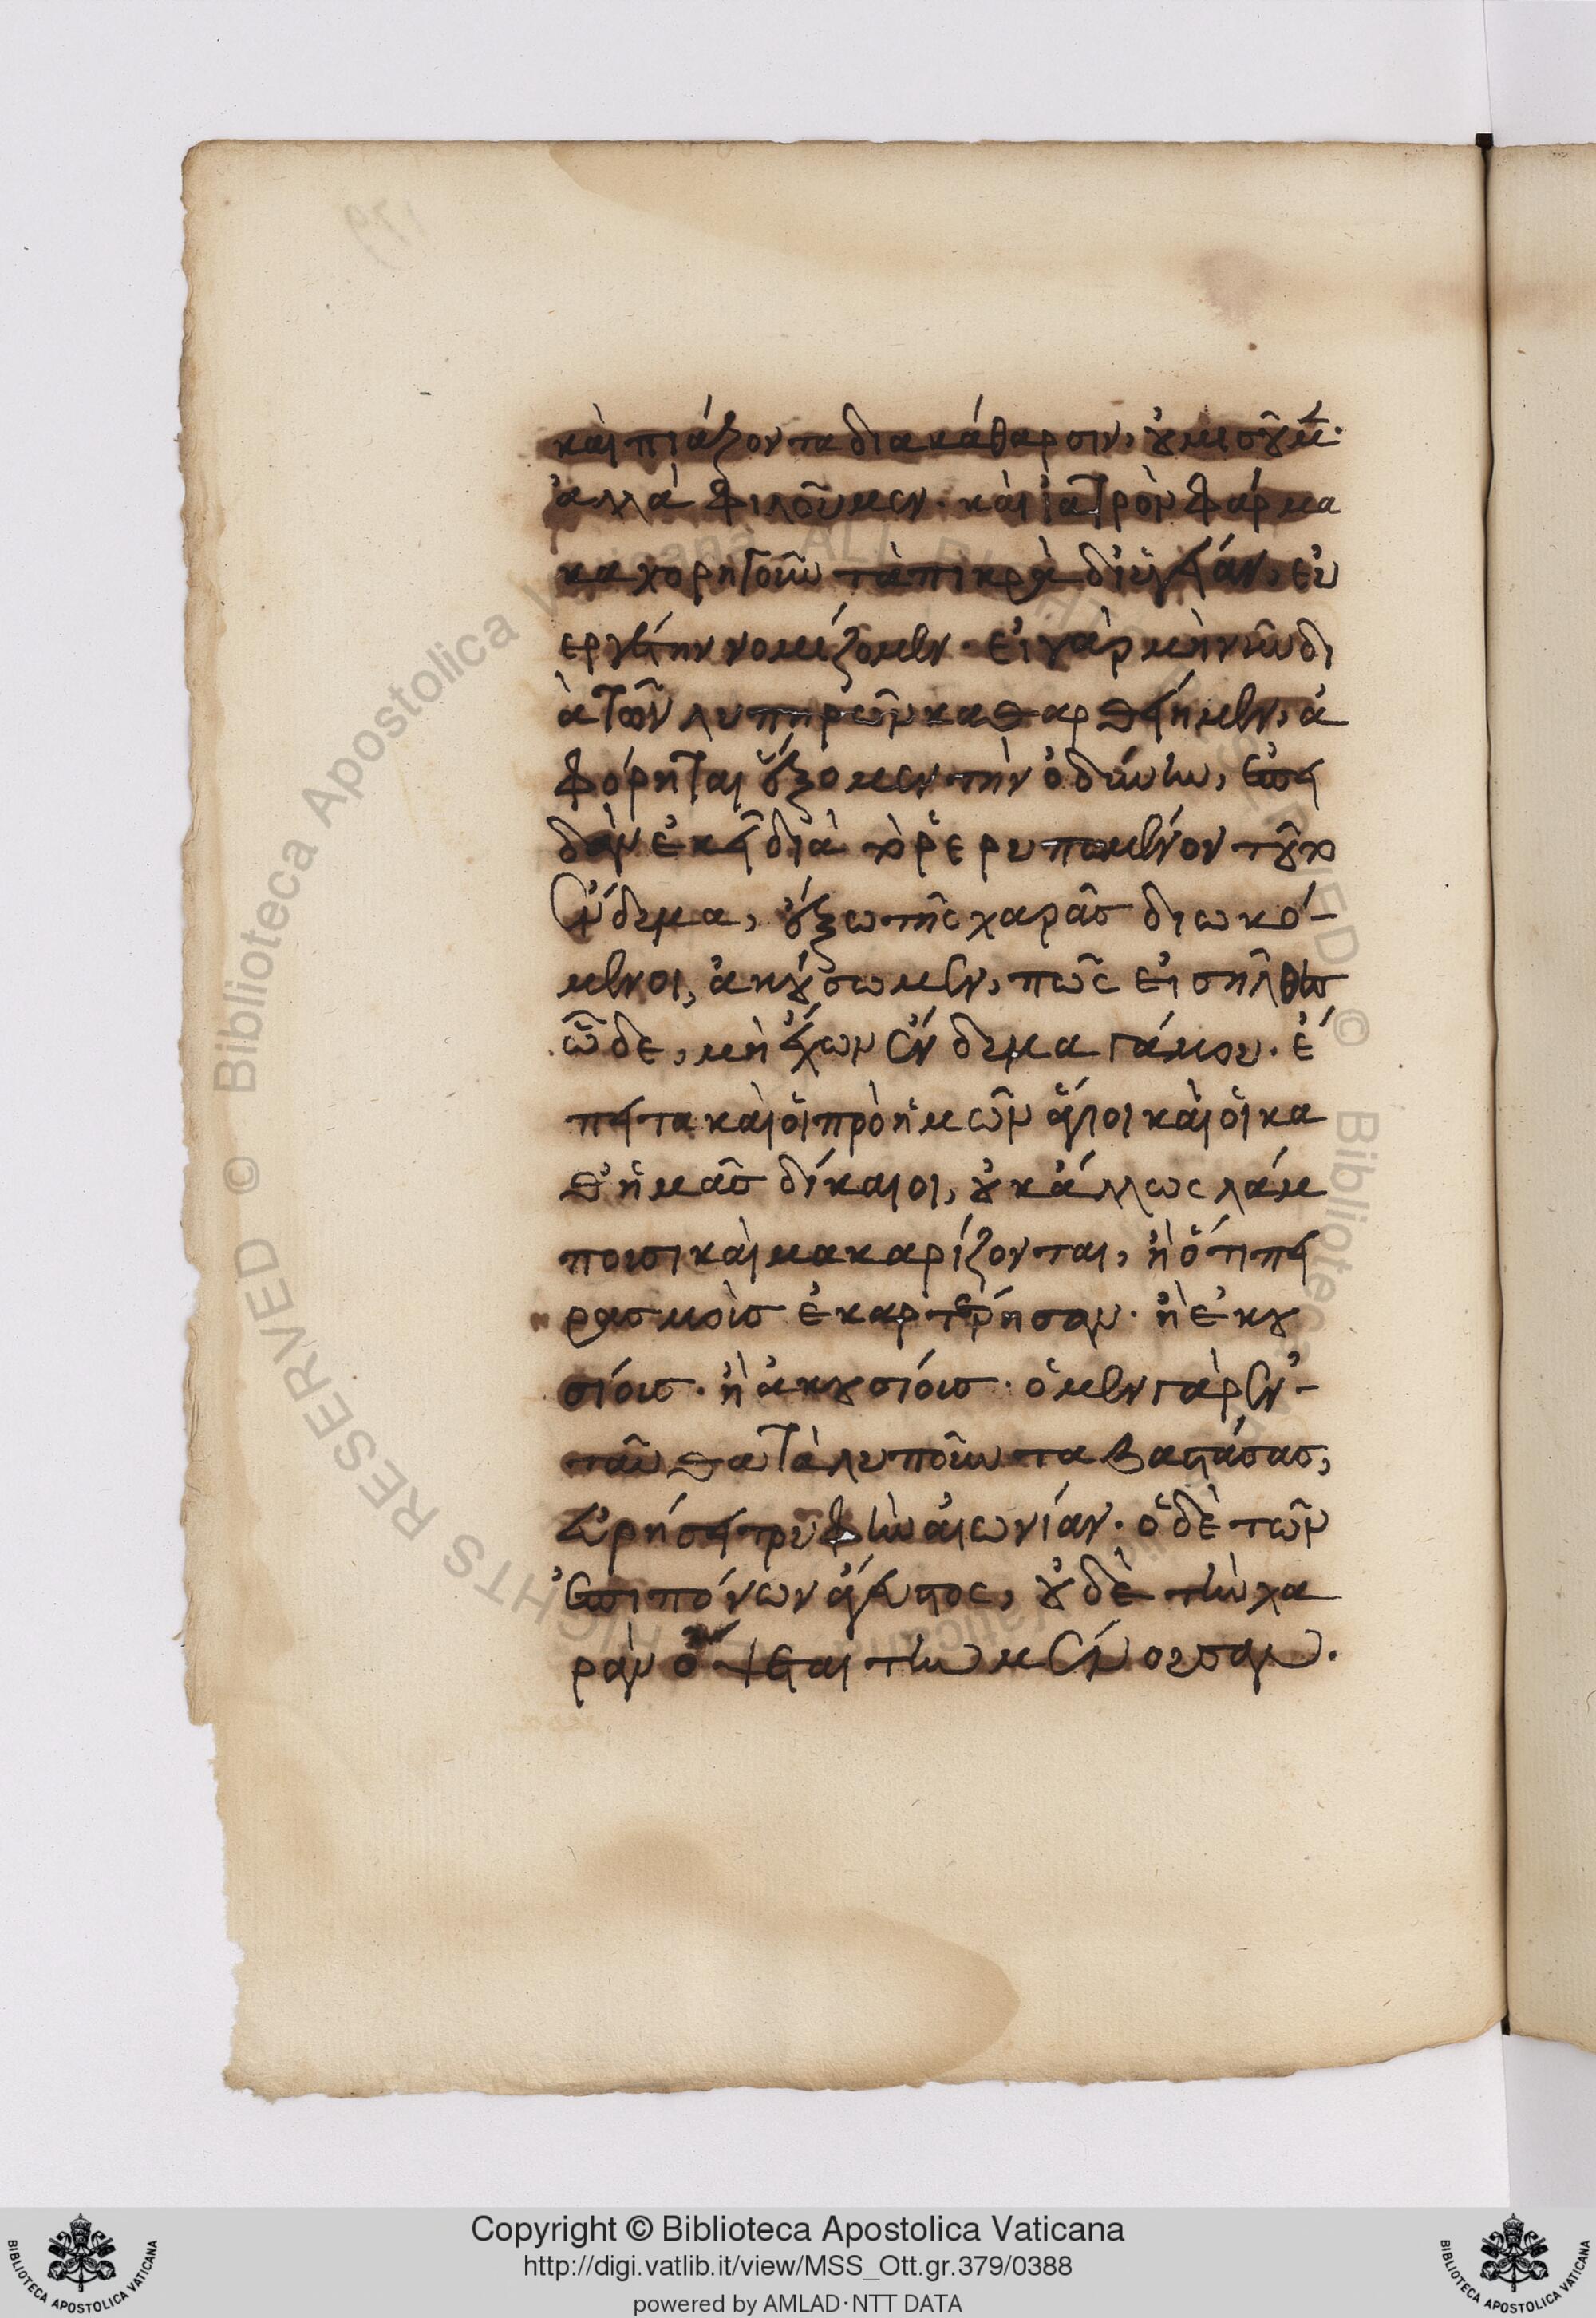 καὶ πιάζοντα διακάθαρσιν, οὐ μισοῦμεν·
ἀλλὰ φιλοῦμεν· καὶ ἰατρὸν φάρμα
κα χορηγοῦν τὰ πικρὰ δι' ὑγείαν, εὐ
εργέτην νομίζομεν· εἰ γὰρ μὴ νῦν δι
ὰ τῶν λυπηρῶν καθαρθείημεν, ἀ
φόρητα ἕξομεν τὴν ὀδύνην, ἐπει
δὰν ἐκεῖ διὰ τὸ ῥερυπωμένον τοῦτο
ἔνδυμα, ἔξω τῆς χαρᾶς διωκό-
μενοι, ἀκούσωμεν, πῶς εἰσῆλθες
ὧδε, μὴ ἔχων ἔνδυμα γάμου. ἔ
πειτα καὶ οἱ πρὸ ἡμῶν ἅγιοι καὶ οἱ κα
θ' ἡμᾶς δίκαιοι, οὐκ ἄλλως λάμ
πουσι καὶ μακαρίζονται, ἢ ὅτι πει
ρασμοῖς ἐκαρτέρησαν· ἢ ἑκου
σίοις· ἢ ἀκουσίοις· ὁ μὲν γὰρ ἐν-
ταῦθα τὰ λυποῦντα βαστάσας,
εὑρήσει τρυφὴν αἰωνίαν· ὁ δὲ τῶν
ἐπιπόνων ἄγευστος, οὐδὲ τὴν χα
ρὰν ὄψεται τὴν μένουσαν.
Copyright © Biblioteca Apostolica Vaticana
http://digi.vatlib.it/view/MSS_Ott.gr.379/0388
powered by AMLAD·NTT DATA
BIBLIOTECA APOSTOLICA VATICANA
BIBLIOTECA APOSTOLICA VATICANA